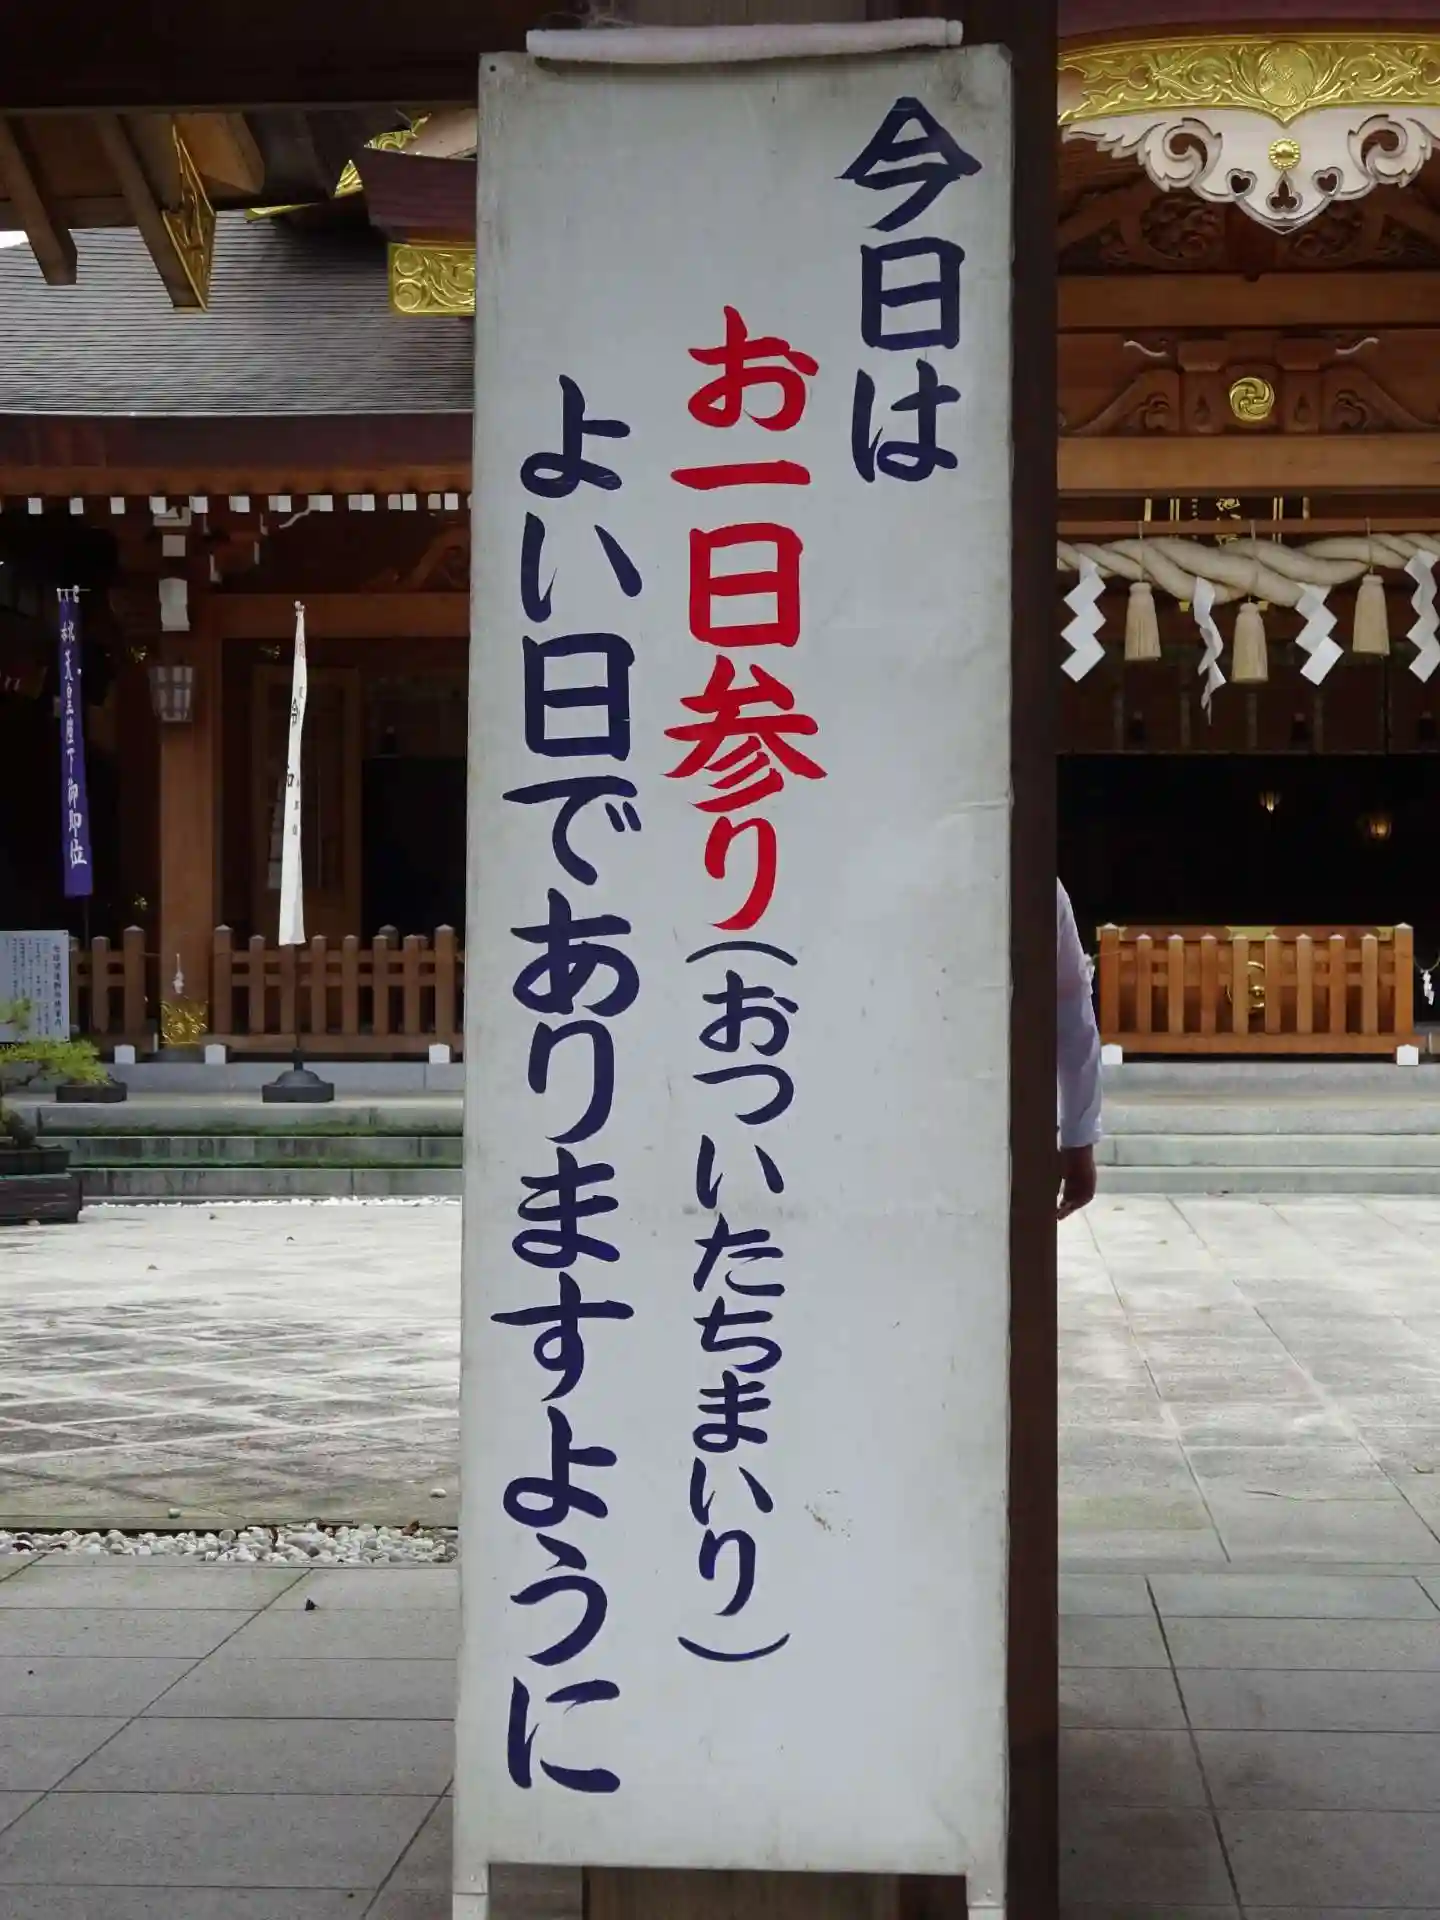 今日は
お一日参り(おついたちまいり)
よい日でありますように
天皇陛下御即位